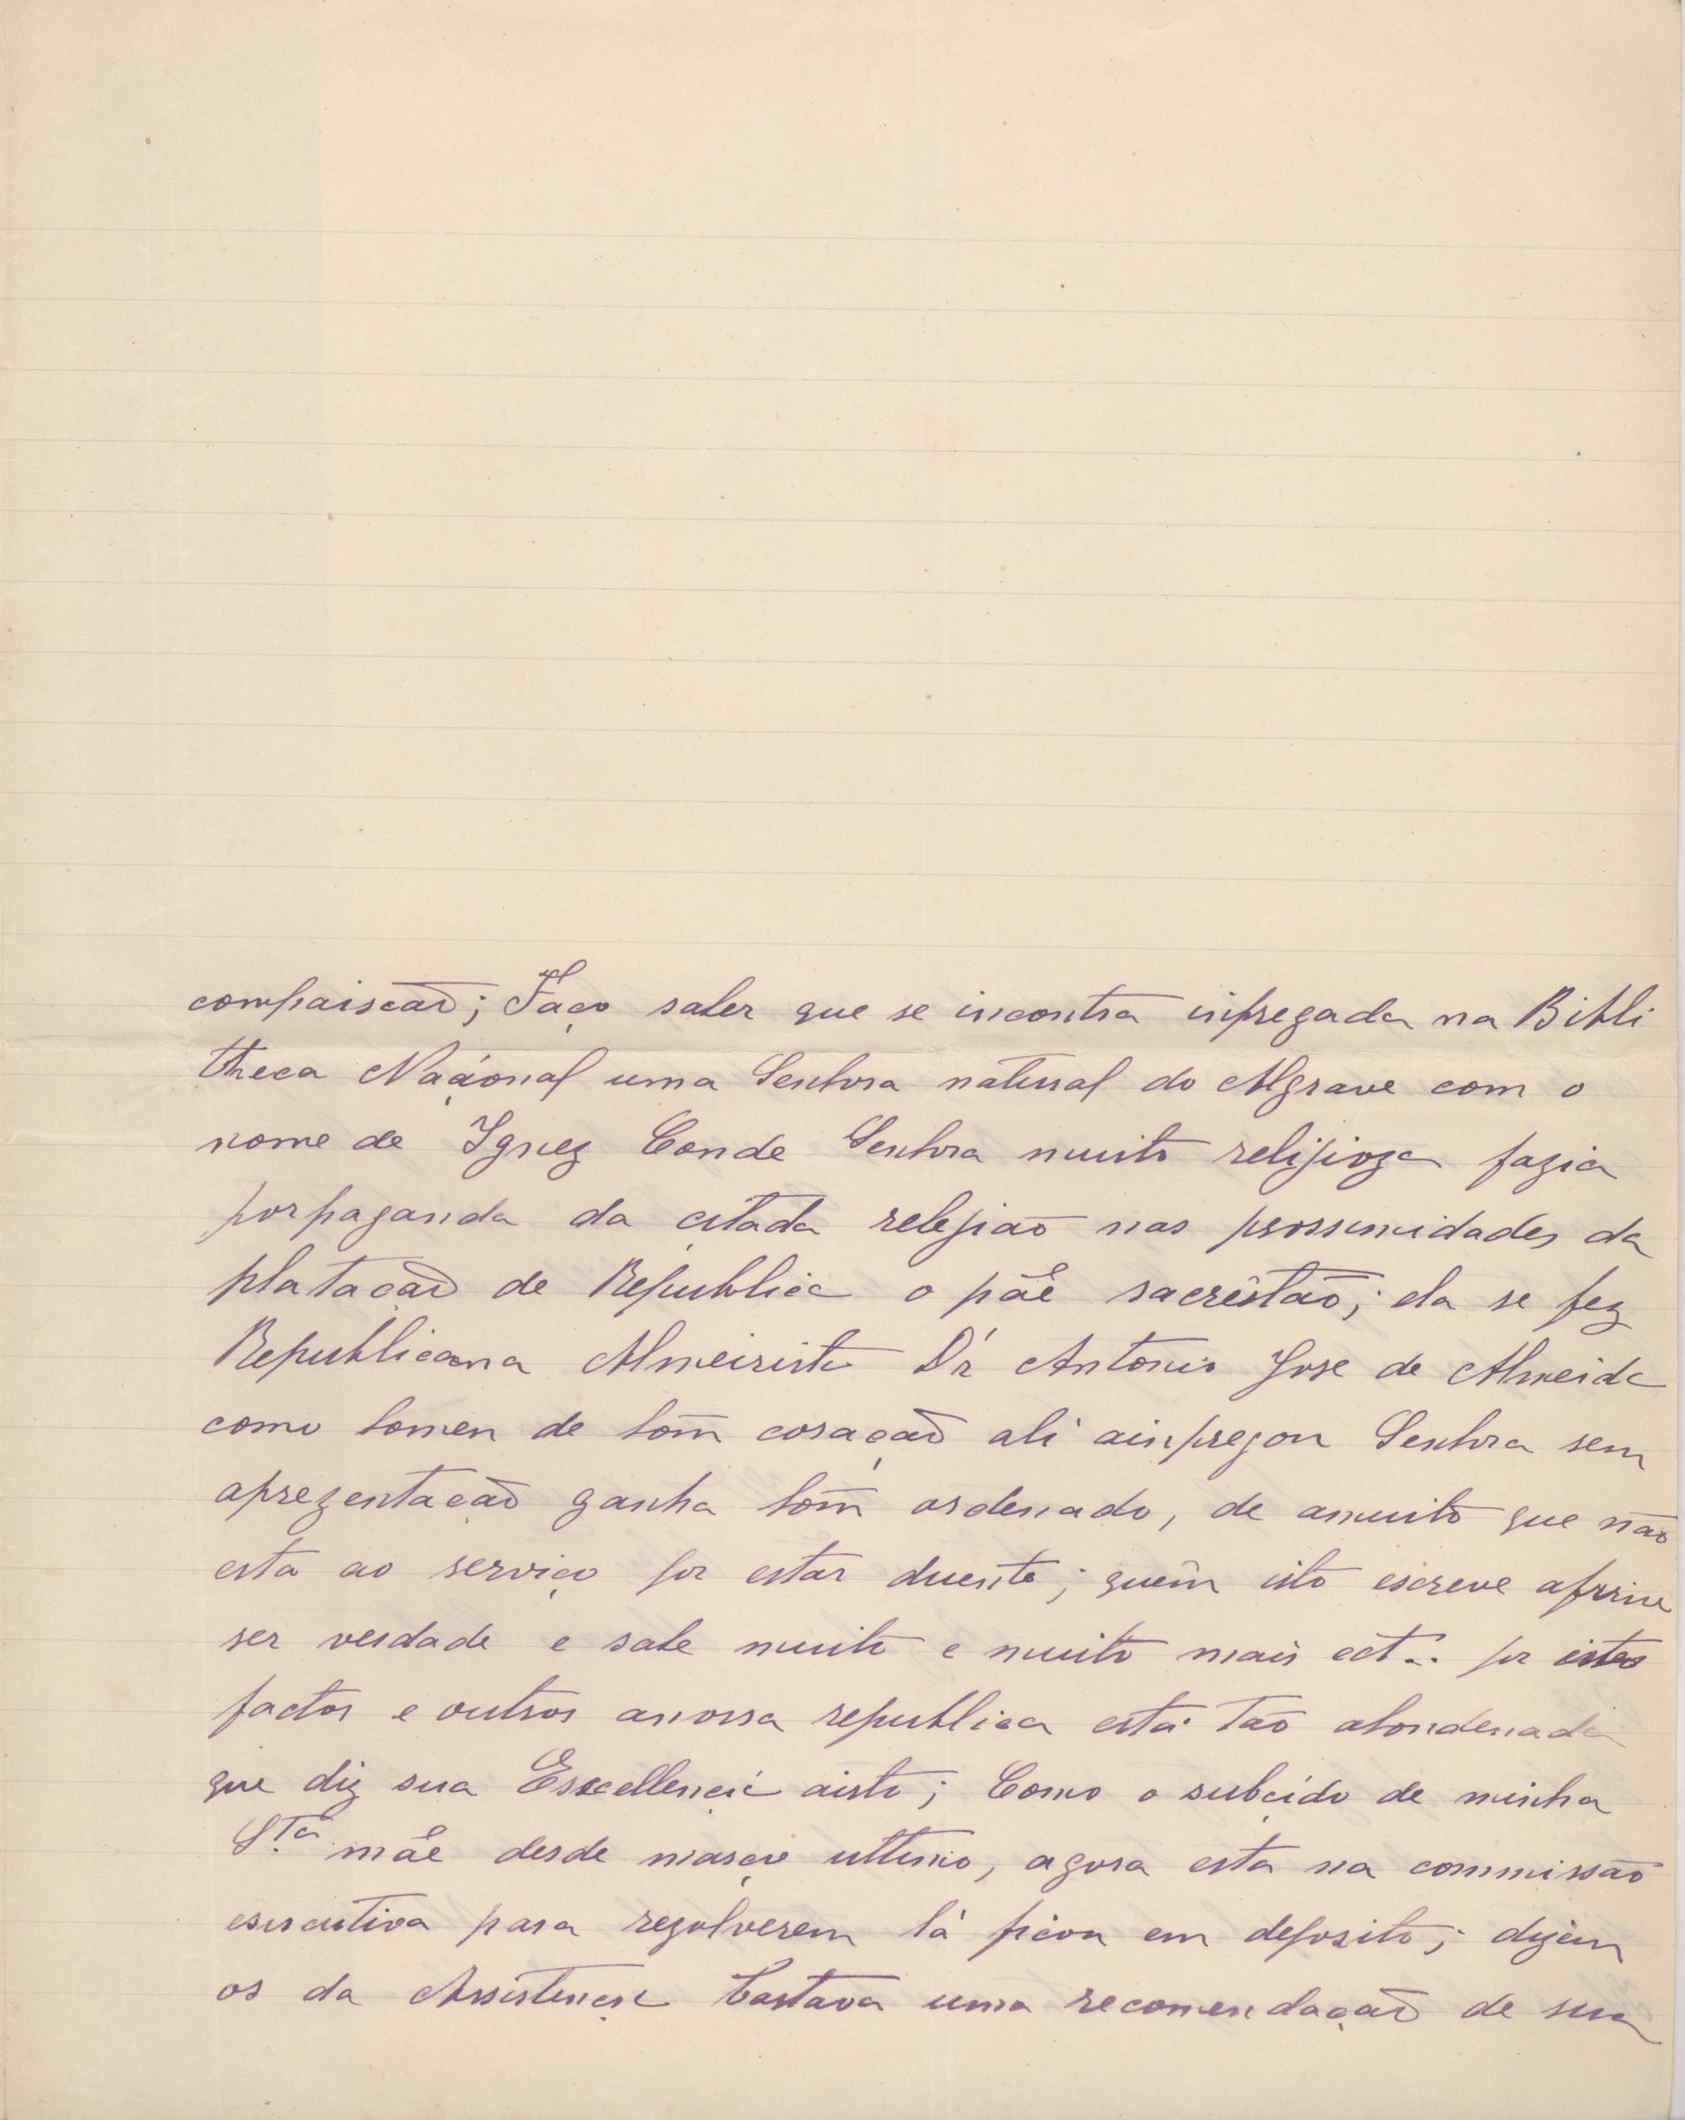 compaiscaõ; Faço saber que se incontra inpregada na Bibli
theca Naçional uma Senhora natural do Algrave com o
nome de Ignez Conde Senhora muito relijioza fazia
porpaganda da çitada relejiaõ nas prossimidades da
plataçaõ de Republica o pãe sacrêstaõ; ela se fez
Republicana Almeirista Dr Antonio Jose de Almeida
como homen de bom coraçaõ ali ainpregou Senhora sem
aprezentaçaõ ganha bom ordenado, de amuito que não
esta ao serviço por estar duente; quêm isto escreve afrime
ser verdade e sabe muito e muito mais ect... por istes
factos e outros anossa republica está taõ abondenada
que diz sua Esxcellençia aisto; Como o subçido de minha
Sta. mãe desde março ultimo, agora esta na commissão
esiscutiva para rezolverem lá ficou em depozito; dizem
os da Assistençia bastava uma recomendaçaõ de sua